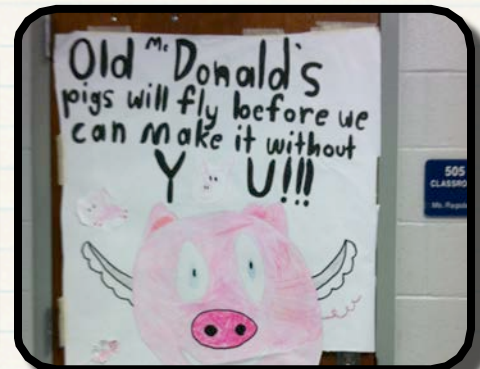 Old Mc Donald's
pigs will fly before we
can make it without
Y U!!!
505
CLASSRO
Ms.